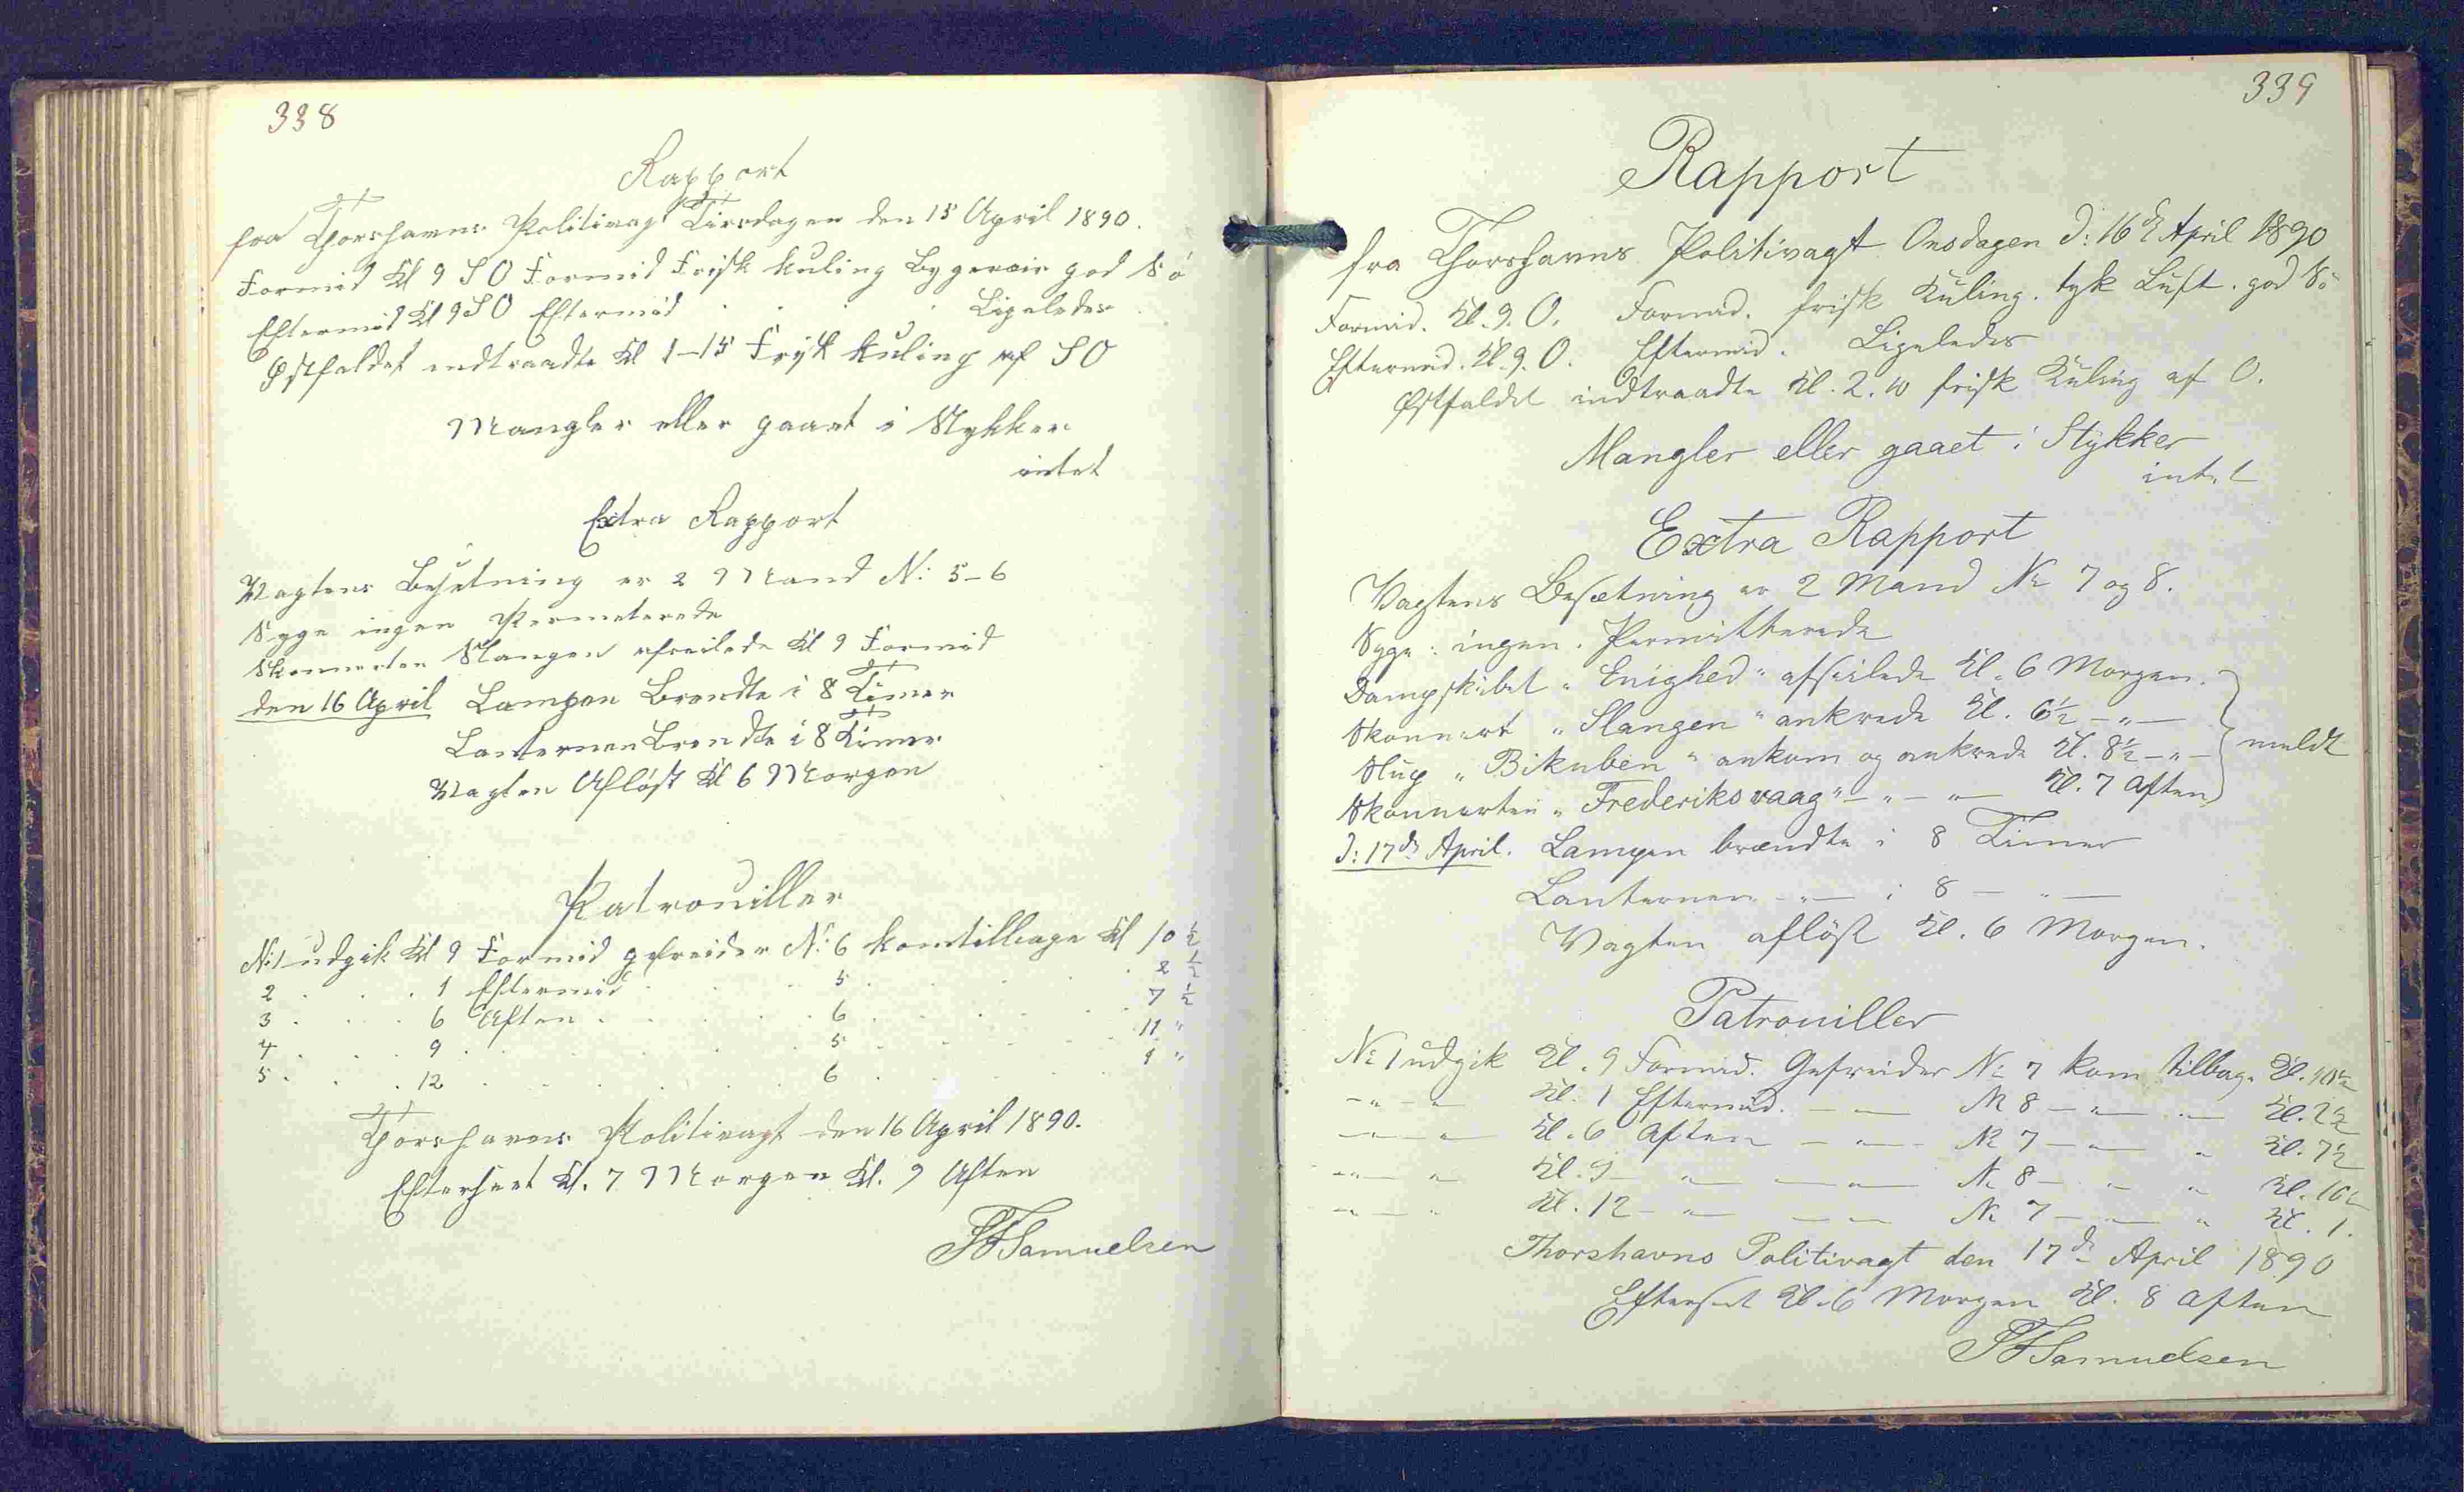 338
Rapport
fra Thorshavns Politivagt Tirsdagen den 15 April 1890.
Formid Kl 9 SO Formid Frisk Kuling Bygeveir god Sö
Eftermid Kl 9 SO Eftermid . . . Ligeledes
Østfaldet indtraadte Kl 1-15 Frisk Kuling af SO
Mangler eller gaaet i Stykker
intet
Extra Rapport
Vagtens Besætning er 2 Mand N: 5-6
Syge ingen Permeterede
Skonnerten Slangen afseilede Kl 9 Formid
den 16 April Lampen Brendte i 8 Timer
Lanternen Brendte i 8 Timer
Vagten Afløst Kl 6 Morgen
Patrouiller
N: 1 udgik Kl 9 Formid gefreider N: 6 kom tilbage Kl 10 ½
2 . . . 1 Eftermid . . . 5 . . . 2 ½
3 . . . 6 Aften . . . 6 . . . 7 ½
4 . . . 9 . . . 5 . . . 11 "
5 . . . 12 . . . 6 . . . 1 "
Thorshavns Politivagt den 16 April 1890.
Efterseet Kl. 7 Morgen Kl. 9 Aften
Samuelsen
339
Rapport
fra Thorshavns Politivagt Onsdagen d: 16 de April 1890
Formid. Kl. 9. O. Formid. frisk Kuling. tyk Luft. god Sö
Eftermid. Kl. 9. O. Eftermid. Ligeledes
Østfaldet indtraadte Kl. 2. 10 frisk Kuling af O.
Mangler eller gaaet i Stykker
intet
Extra Rapport
Vagtens Besætning er 2 Mand No 7 og 8.
Syge: ingen. Permitterede
Dampskibet "Enighed" afseilede Kl. 6 Morgen.
Skonnert "Slangen" ankrede Kl. 6½ - " -
Slup "Bikuben" ankom og ankrede Kl. 8½ - " - meldt
Skonnerten "Frederiksvaag" - " - " - Kl. 7 Aften
d: 17de April. Lampen brændte i 8 Timer
Lanternen - " - i 8 - " -
Vagten afløst Kl. 6 Morgen.
Patrouiller
No 1 udgik Kl. 9 Formid. Gefreider No 7 kom tilbage Kl. 10½
- " - " Kl. 1 Eftermid. - " - No 8 - " - " - Kl. 2½
- " - " Kl. 6 Aften - " - No 7 - " - " Kl. 7½
- " - " Kl. 9 - " - " - No 8 - " - " Kl. 10½
- " - " Kl. 12 - " - " - No 7 - " - " Kl. 1.
Thorshavns Politivagt den 17de April 1890
Efterseet Kl. 6 Morgen Kl. 8 Aften
Samuelsen